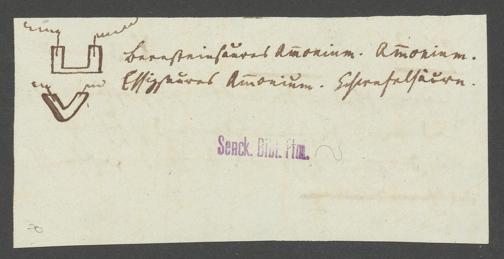 bernsteinsaures Amonium. Amonium.
Essigsaures Amonium. Schwefelsäure.
Senck. Bibl. Ffm.